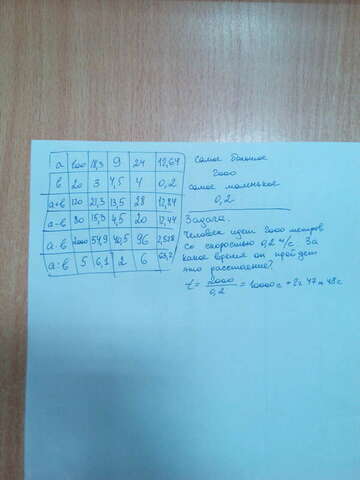 а 100 18,3 9 24 12,64
в 20 3 4,5 4 0,2
а+в 120 21,3 13,5 28 12,84
а-в 80 15,3 4,5 20 12,44
а·в 2000 54,9 40,5 96 2,528
а:в 5 6,1 2 6 63,2
самое большое
2000
самое маленькое
0,2
Задача.
Человек идет 2000 метров
со скоростью 0,2 м/с. За
какое время он пройдет
это расстояние?
t = 2000/0,2 = 10000 с = 2ч 47м 48с